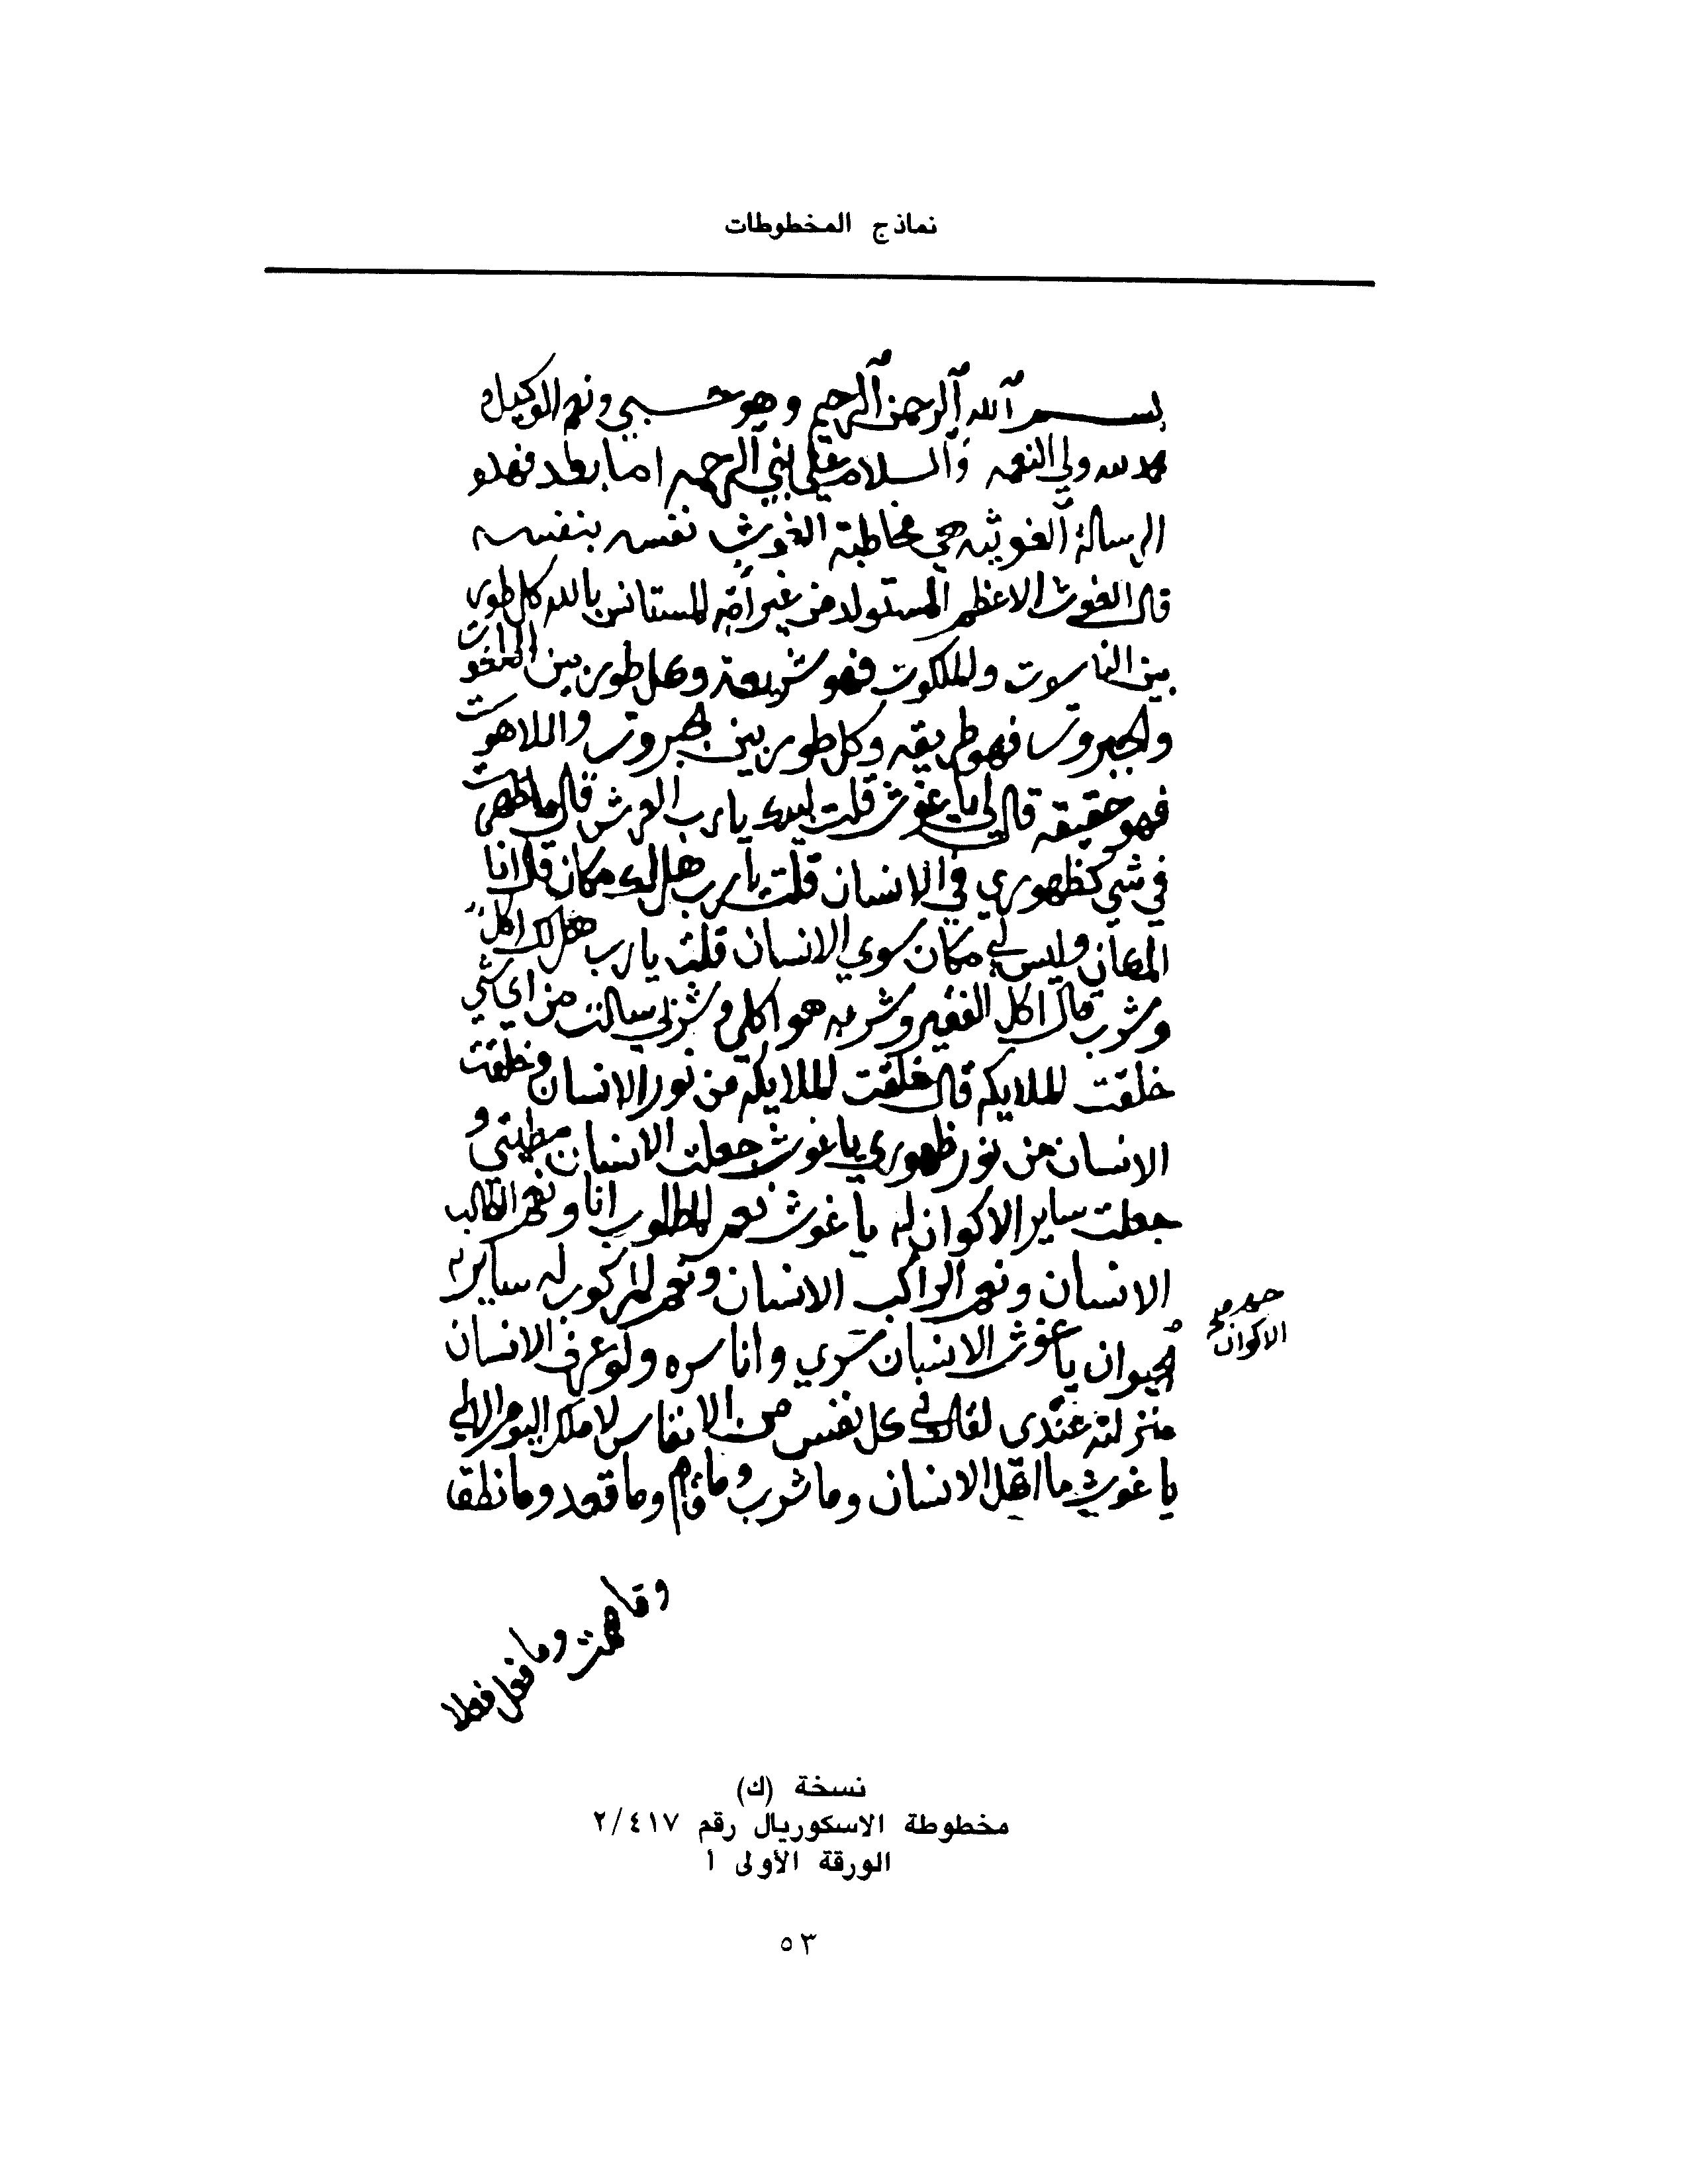 نماذج المخطوطات
بسم الله الرحمن الرحيم وهو حسبي ونعم الوكيل
لله ولي النعمه والسلام على نبي الرحمه اما بعد فهذه
الرسالة الغوثيه هي مخاطبة الغوث نفسه بنفسه
قال الغوث الاعظم المستولد من غير المستانس بالله كل طور
بين الناسوت والملكوت فهو شريعة وكل طور بين
والجبروت فهو طريقه وكل طور بين الجبروت واللاهوت
فهو حقيقه قال لي يا غوث قلت لبيك يا رب العرش قال ما ظهرت
في شي كظهوري في الانسان قلت يا رب هل لك مكان قال انا
المكان وليس لي مكان سوي الانسان قلت يا رب هل لك اكل
وشرب قال اكل الفقير وشربه هو اكلي وشربي سالت من اي شي
خلقت الملايكه قال خلقت الملايكه من نور الانسان وخلقت
الانسان من نور ظهوري يا غوث جعلت الانسان مطيتي و
جعلت ساير الاكوان له يا غوث نعم المطلوب انا ونعم الطالب
الانسان ونعم الراكب الانسان ونعم المركوب له ساير
الحيوان يا غوث الانسان سري وانا سره ولو عرف الانسان
الاكوان
منزلته عندي لقال في كل نفس من الانفاس لا ملك اليوم الا لي
يا غوث ما اكل الانسان وما شرب وما قام وما قعد وما نطق
وما وما فعل فعلا
نسخة (ك)
مخطوطة الاسكوريال رقم ٢/٤١٧
الورقة الأولى أ
٥٣